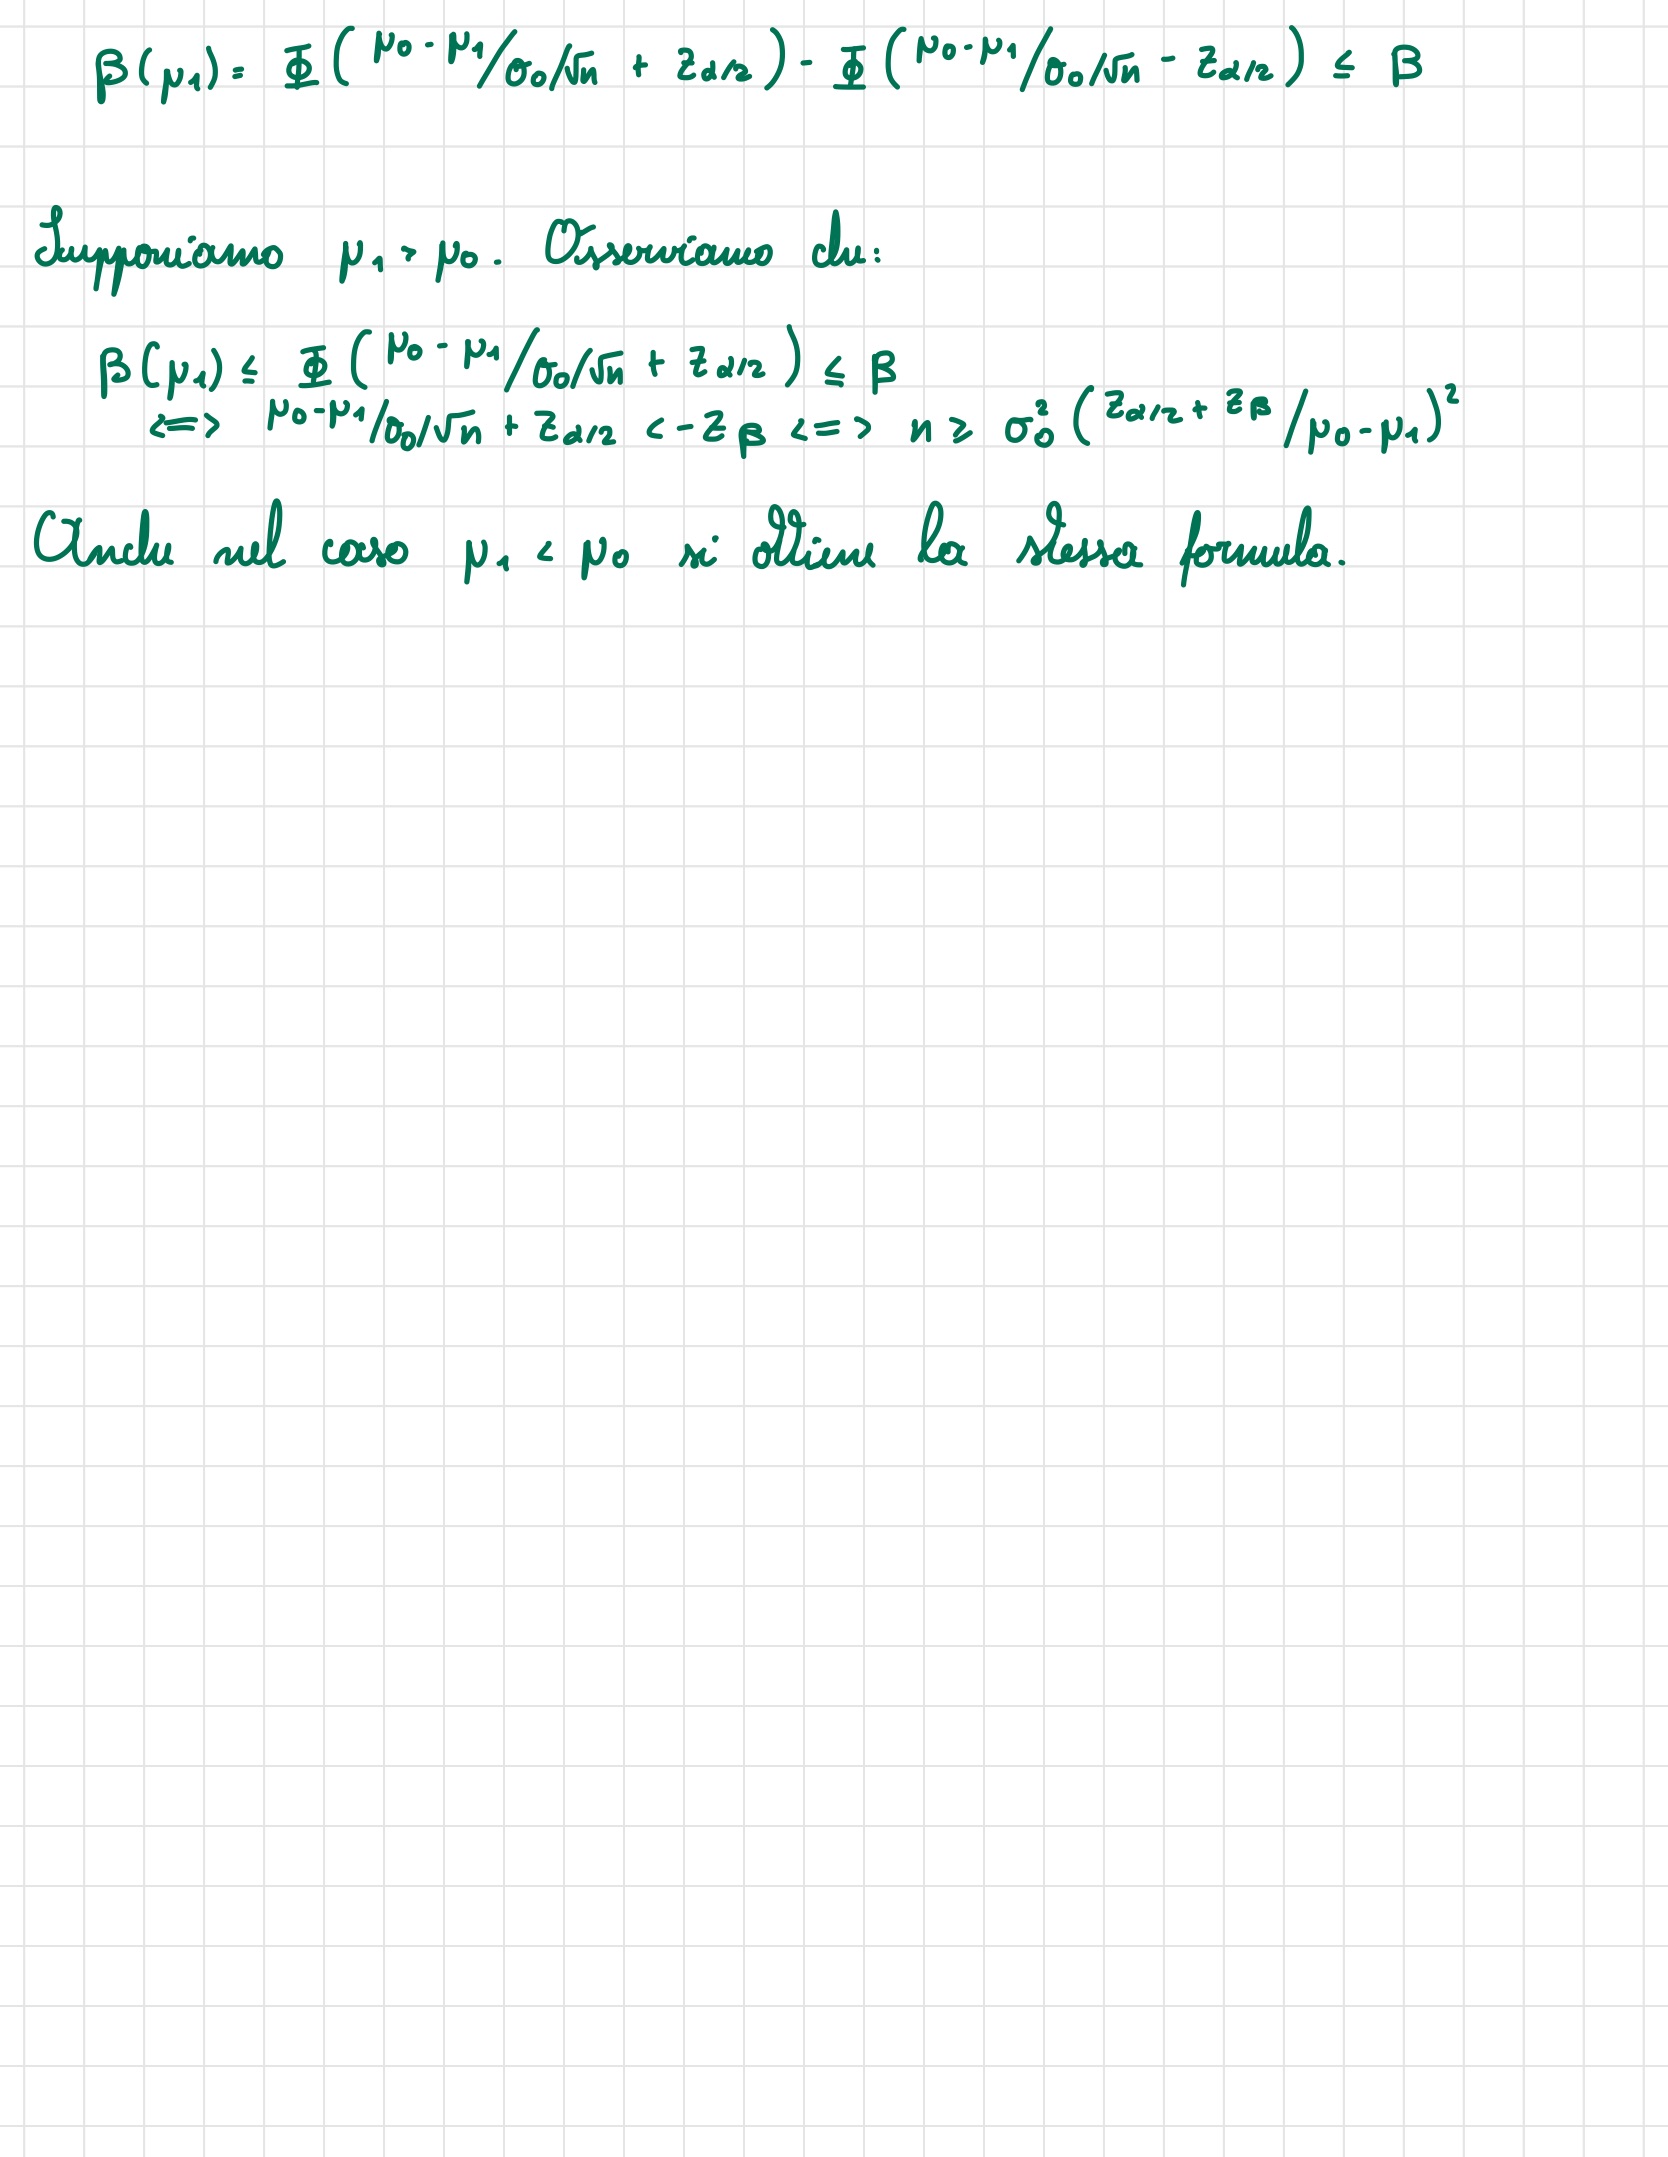 β(μ₁) = Φ(μ₀-μ₁/σ₀/√n + z_α/2) - Φ(μ₀-μ₁/σ₀/√n - z_α/2) ≤ β
Supponiamo μ₁ > μ₀. Osserviamo che:
β(μ₁) ≤ Φ(μ₀-μ₁/σ₀/√n + z_α/2) ≤ β
<=> μ₀-μ₁/σ₀/√n + z_α/2 < -z_β <=> n ≥ σ₀²(z_α/2 + z_β/μ₀-μ₁)²
Anche nel caso μ₁ < μ₀ si ottiene la stessa formula.